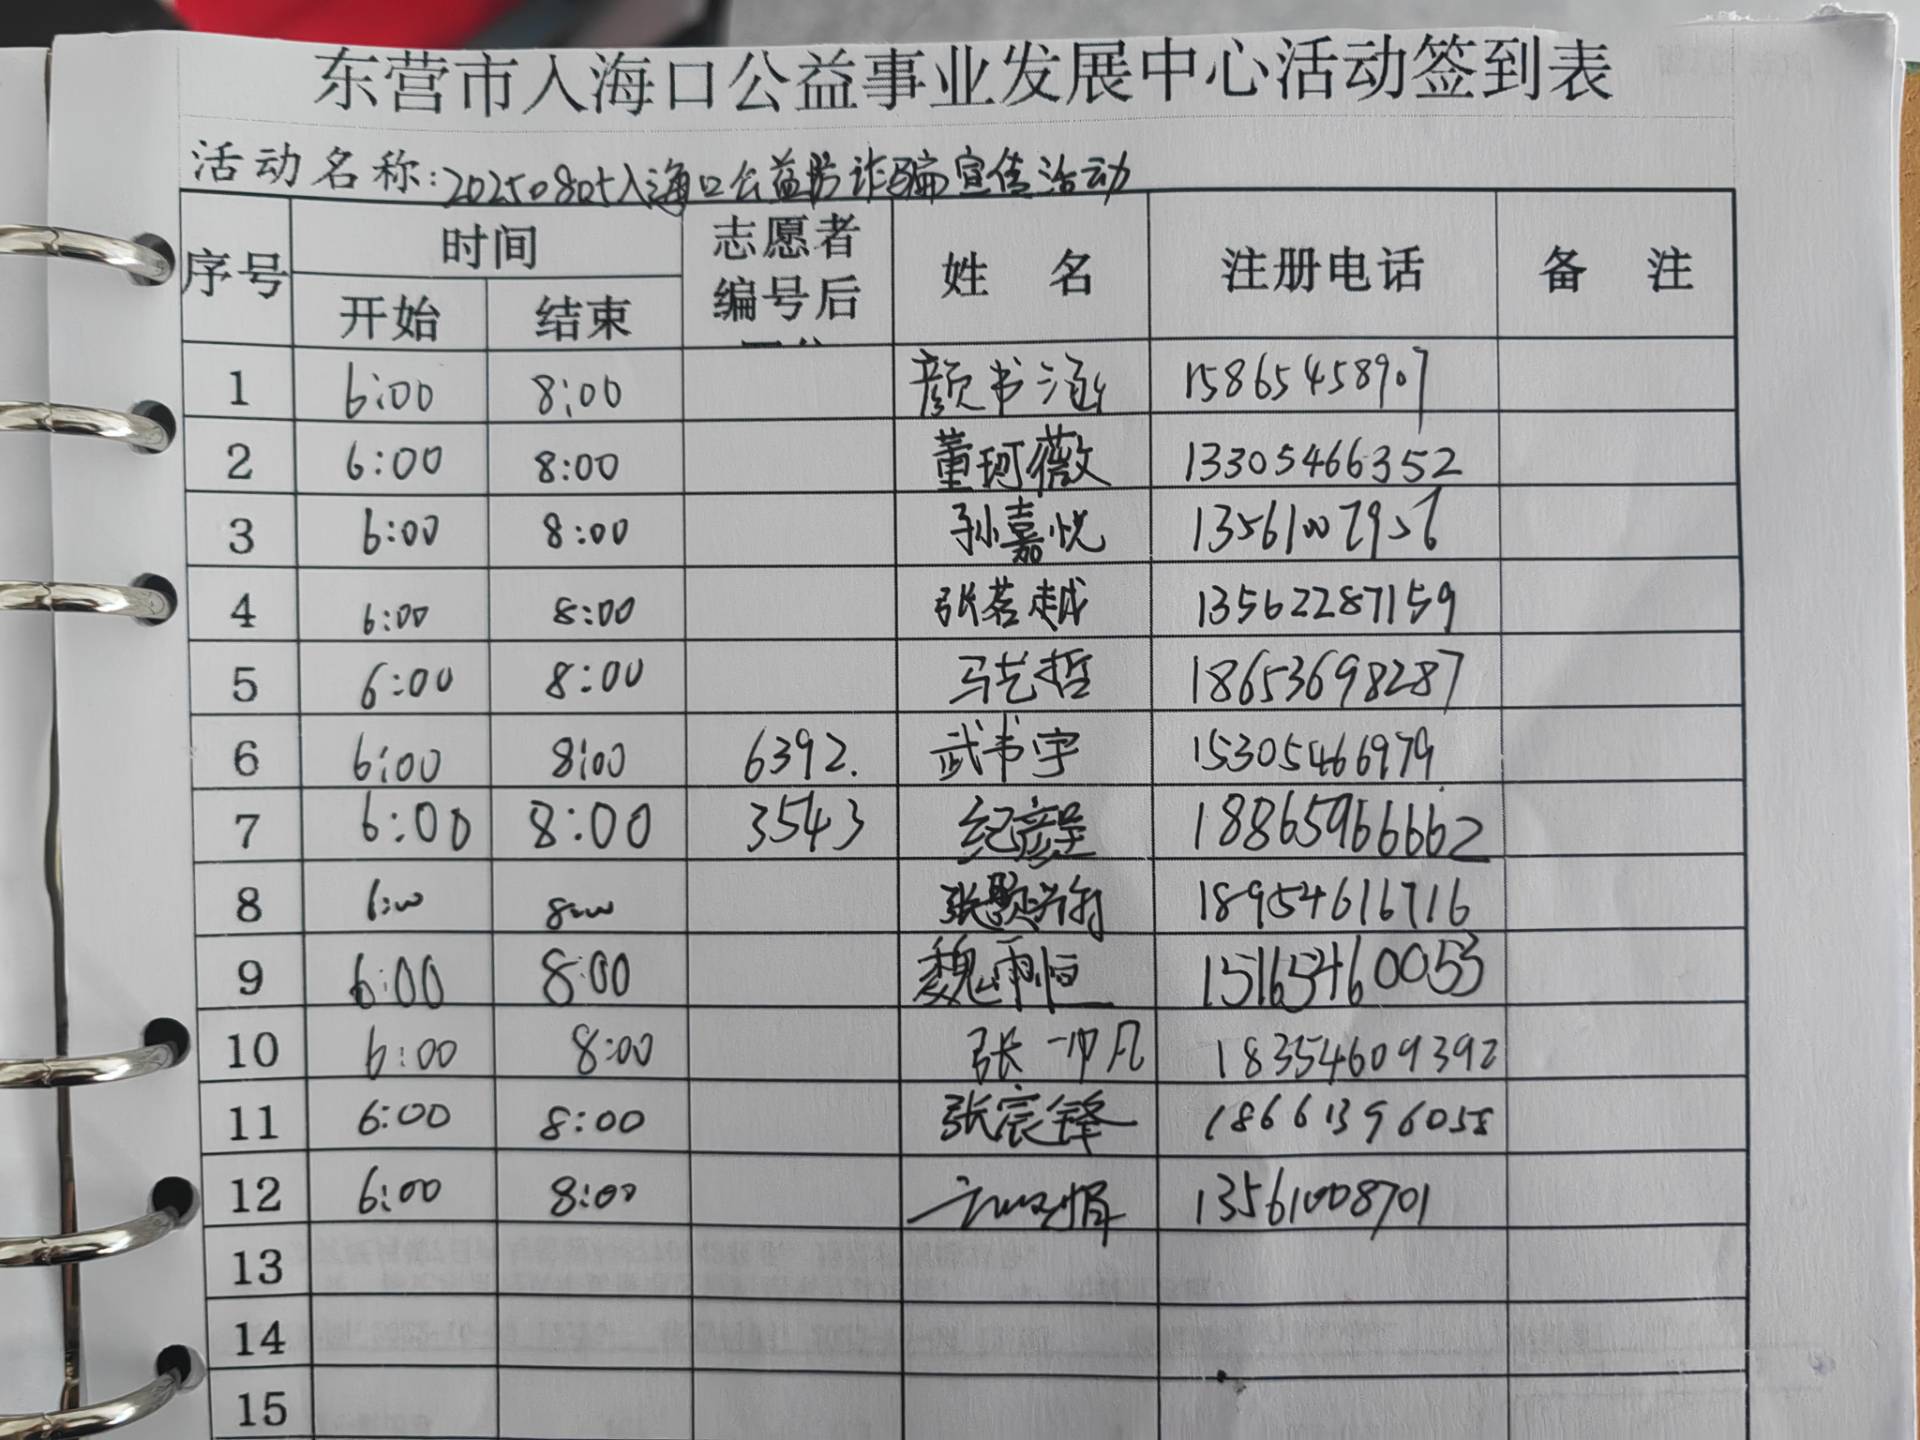 东营市入海口公益事业发展中心活动签到表
活动名称:20250805入海口公益防诈骗宣传活动
序号 时间 志愿者编号后 姓 名 注册电话 备 注
开始 结束
1 6:00 8:00 颜书涵 15865458907
2 6:00 8:00 董珂薇 13305466352
3 6:00 8:00 孙嘉悦 13561007956
4 6:00 8:00 张茗越 13562287159
5 6:00 8:00 马艺哲 18653698287
6 6:00 8:00 6392. 武书宇 15305466979
7 6:00 8:00 3543 纪彦呈 18865966662
8 6:00 8:00 张 18954616716
9 6:00 8:00 魏雨恒 15165460053
10 6:00 8:00 张一帅凡 18354609392
11 6:00 8:00 张宸锋 18661396058
12 6:00 8:00 13561008701
13
14
15